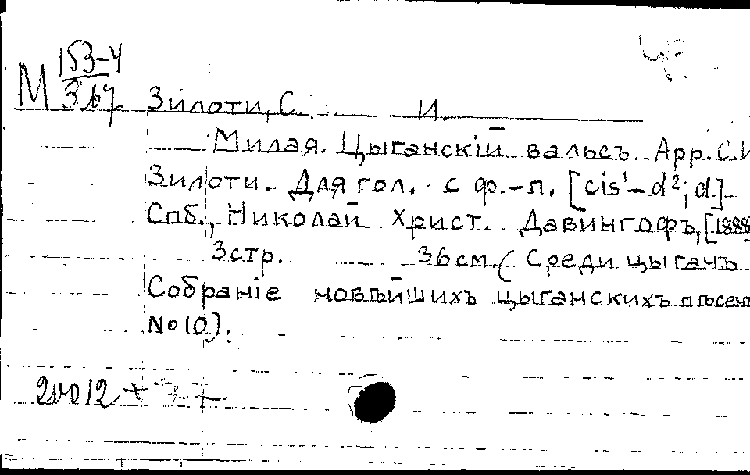 М 153-4
367
Зилоти, С. И.
Милая. Цыганскій вальсъ. Арр. С. И
Зилоти. Для гол. с ф.-п. [cis¹-d²; d.]
Спб., Николай Христ. Давингофъ, [1888
3 стр. 36 см. (Среди цыганъ
Собраніе новѣйшихъ цыганскихъ пѣсен
№ 10).